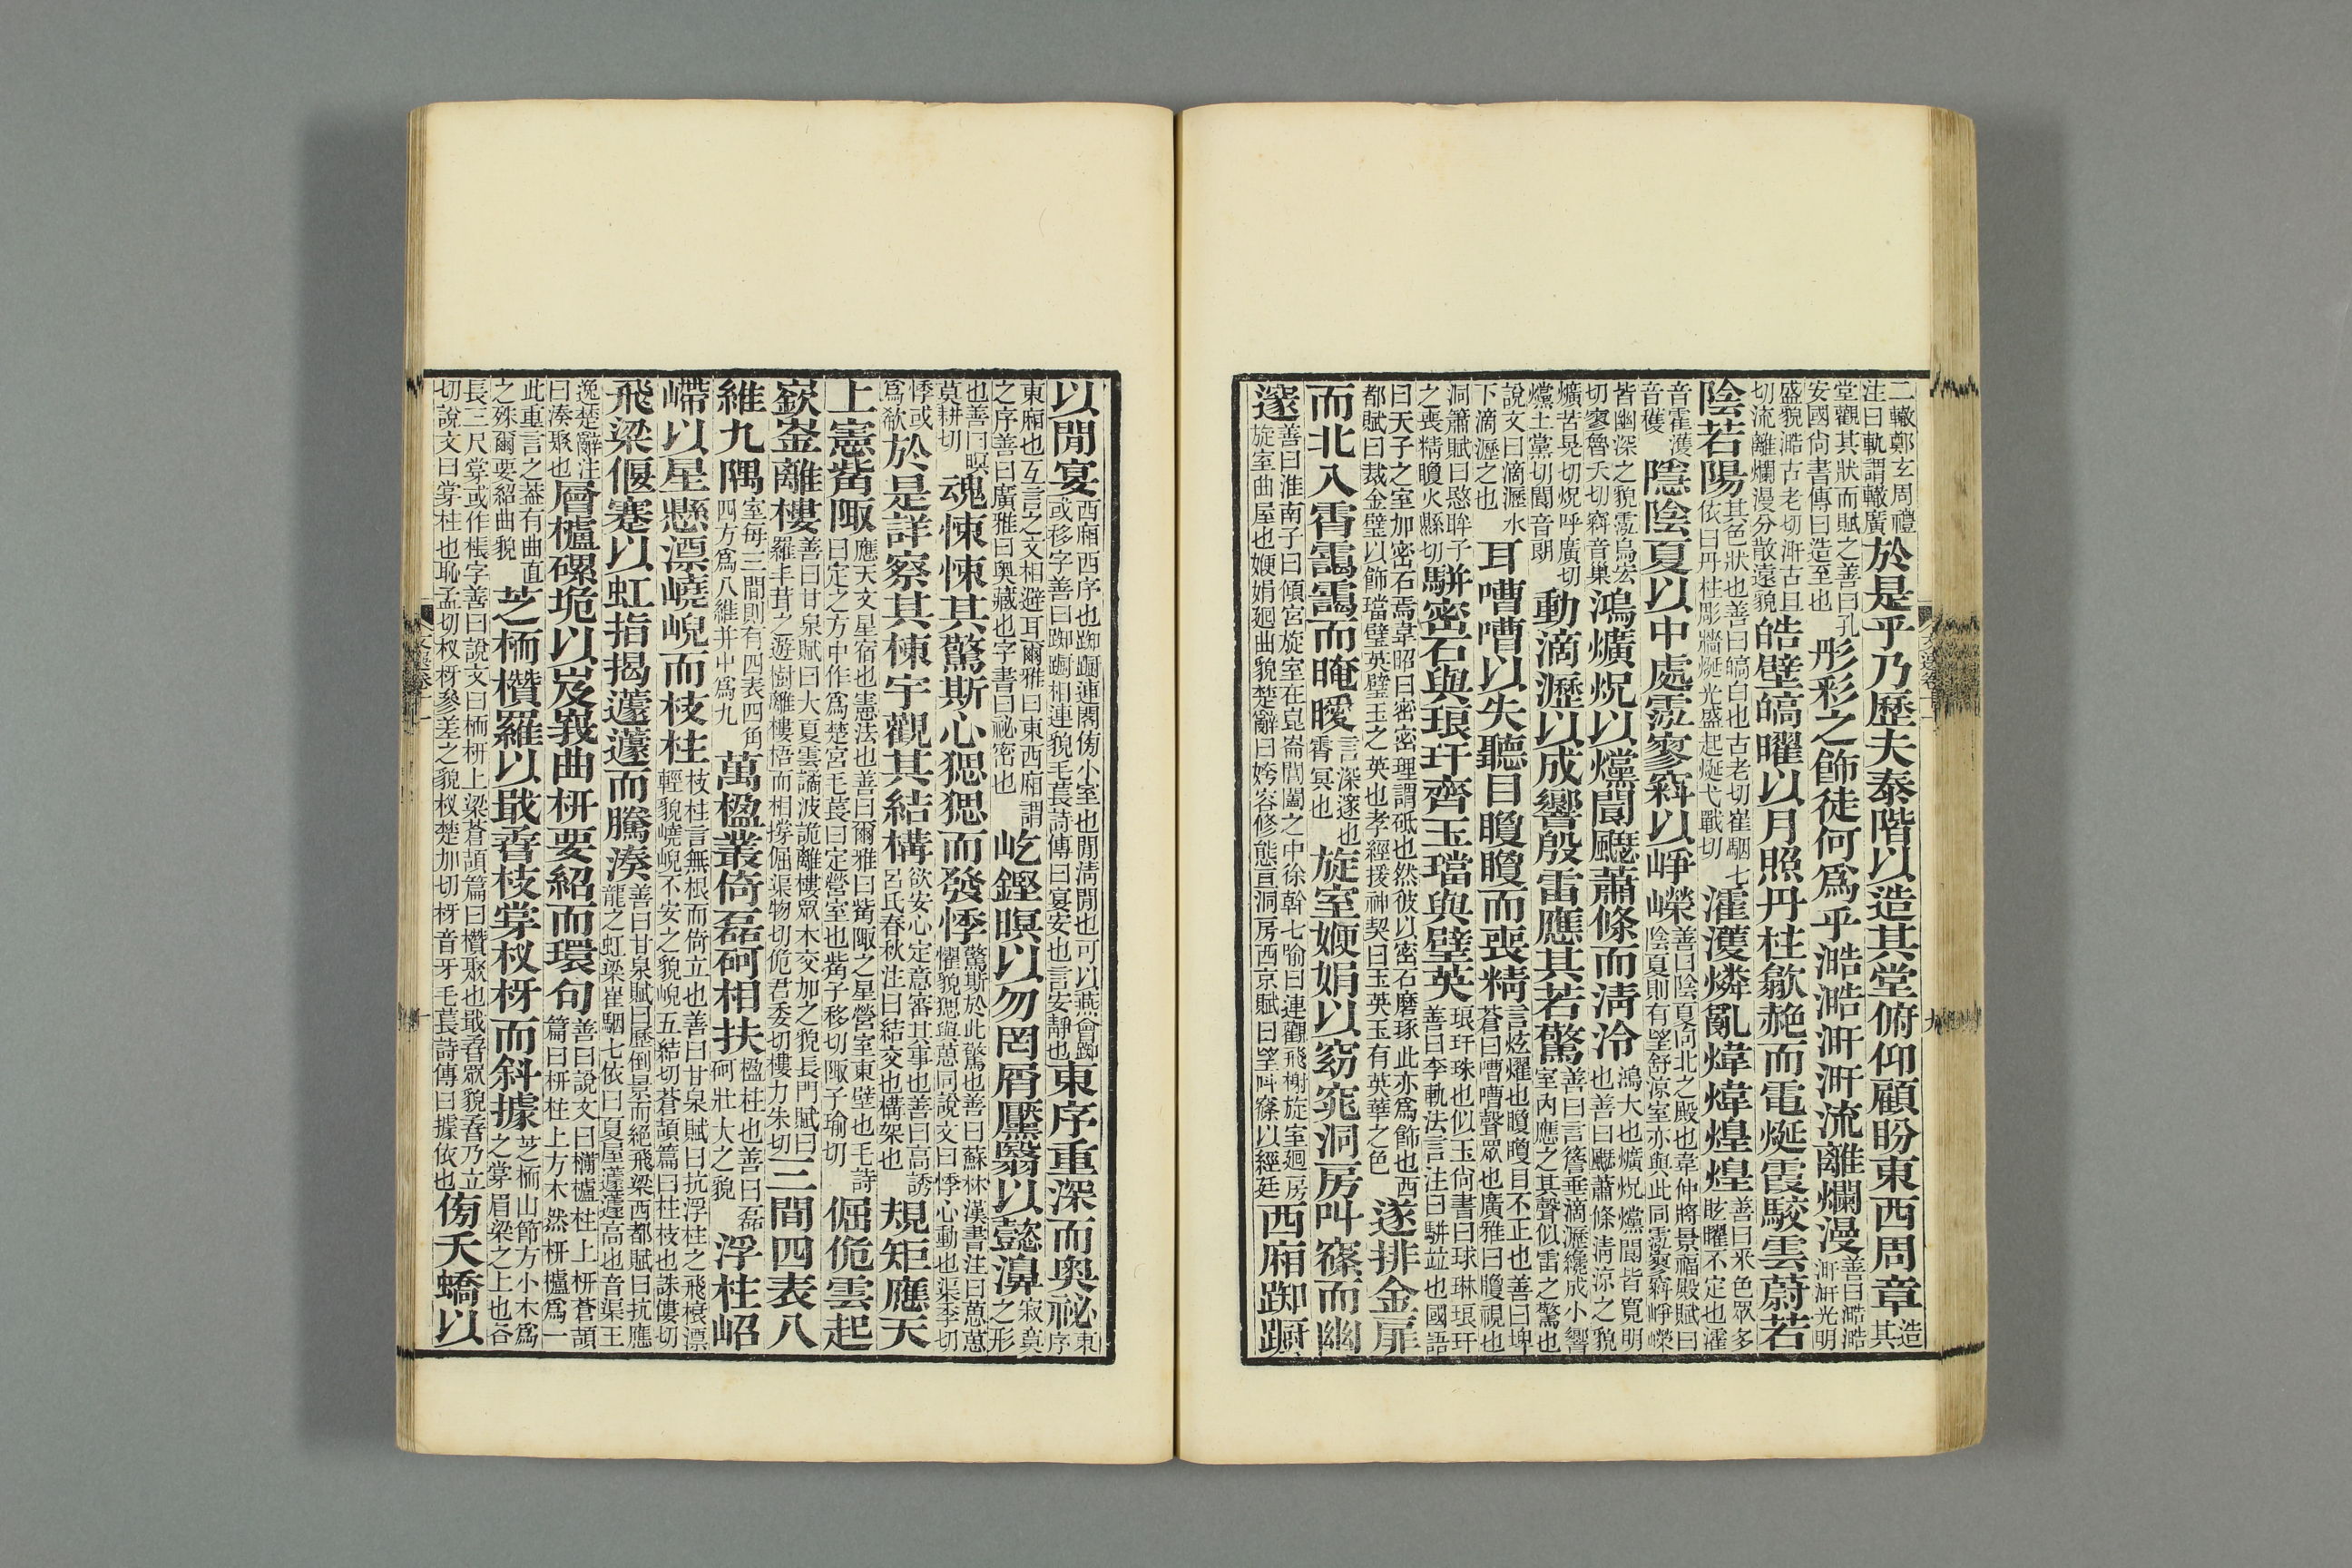 二轍鄭玄周禮注曰軌謂轍廣於是乎乃歷夫泰階以造其堂俯仰顧盼東西周章造其
堂觀其狀而賦之善曰孔安國尚書傳曰造至也彤彩之飾徒何為乎澔澔涆涆流離爛漫善曰澔澔涆涆光明
盛貌澔古老切涆古旦切流離爛漫分散遠貌皓壁皜曜以月照丹柱歙赩而電烻霞駮雲蔚若
陰若陽其色狀也善曰皜白也古老切崔駰七依曰丹柱彫牆烻光盛起烻弋戰切瀖濩燐亂煒煒煌煌善曰采色眾多眩曜不定也瀖
音霍濩音穫隱陰夏以中處霐寥窲以崢嶸善曰陰夏向北之殿也韋仲將景福殿賦曰陰夏則有望舒凉室亦與此同霐寥窲崢嶸
皆幽深之貌霐烏宏切寥魯夭切窲音巢鴻爌炾以爣閬飋蕭條而清泠鴻大也爌炾爣閬皆寬明也善曰飋蕭條清涼之貌
爌苦晃切炾呼廣切爣土黨切閬音朗動滴瀝以成響殷雷應其若驚善曰言簷垂滴瀝纔成小響室內應之其聲似雷之驚也
說文曰滴瀝水下滴瀝之也耳嘈嘈以失聽目矎矎而喪精言炫燿也矎矎目不正也善曰埤蒼曰嘈嘈聲眾也廣雅曰矎視也
洞簫賦曰愍眸子之喪精矎火縣切駢密石與琅玕齊玉璫與璧英琅玕珠也似玉尚書曰球琳琅玕善曰李軌法言注曰駢竝也國語
曰天子之室加密石焉韋昭曰密密理謂砥也然彼以密石磨琢此亦為飾也西都賦曰裁金璧以飾璫璧英璧玉之英也孝經援神契曰玉英玉有英華之色遂排金扉
而北入霄靄靄而晻曖言深邃也霄冥也旋室㛹娟以窈窕洞房叫窱而幽
邃善曰淮南子曰傾宮旋室在崑崙閶闔之中徐幹七喻曰連觀飛榭旋室廻房旋室曲屋也㛹娟廻曲貌楚辭曰姱容修態亘洞房西京賦曰望叫窱以經廷西廂踟躕
以閒宴西廂西序也踟躕連閣傍小室也閒清閒也可以燕會踟或移字善曰踟躕相連貌毛萇詩傳曰宴安也言安靜也東序重深而奧祕東序
東廂也互言之文相避耳爾雅曰東西廂謂之序善曰廣雅曰奧藏也字書曰祕密也屹鏗瞑以勿罔屑黶翳以懿濞寂寞之形
也善曰瞑莫耕切魂悚悚其驚斯心㥴㥴而發悸驚斯於此驚也善曰蘇林漢書注曰葸葸懼貌㥴與葸同說文曰悸心動也渠季切
悸或為欷於是詳察其棟宇觀其結構欲安心定意審其事也善曰高誘呂氏春秋注曰結交也構架也規矩應天
上憲觜陬應天文星宿也憲法也善曰爾雅曰觜陬之星營室東壁也毛詩曰定之方中作為楚宮毛萇曰定營室也觜子移切陬子瑜切倔佹雲起
嶔崟離樓善曰甘泉賦曰大夏雲譎波詭離樓眾木交加之貌長門賦曰羅丰茸之遊樹離樓梧而相撐倔渠物切佹君委切樓力朱切三間四表八
維九隅室每三間則有四表四角四方為八維并中為九萬楹叢倚磊砢相扶楹柱也善曰磊砢壯大之貌浮柱岹
嵽以星懸漂嶢峴而枝柱枝柱言無根而倚立也善曰甘泉賦曰抗浮柱之飛榱漂輕貌嶢峴不安之貌峴五結切蒼頡篇曰柱枝也誅僂切
飛梁偃蹇以虹指揭蘧蘧而騰湊善曰甘泉賦曰歷倒景而絕飛梁西都賦曰抗應龍之虹梁崔駰七依曰夏屋蘧蘧蘧高也音渠王
逸楚辭注曰湊聚也層櫨磥垝以岌峩曲枅要紹而環句善曰說文曰欂櫨柱上枅蒼頡篇曰枅柱上方木然枅櫨為一
此重言之蓋有曲直之殊爾要紹曲貌芝栭欑羅以戢孴枝掌杈枒而斜據芝栭山節方小木為之掌眉梁之上也各
長三尺掌或作棖字善曰說文曰栭枅上梁蒼頡篇曰欑聚也戢孴眾貌孴乃立切說文曰掌柱也恥孟切杈枒參差之貌杈楚加切枒音牙毛萇詩傳曰據依也傍夭蟜以